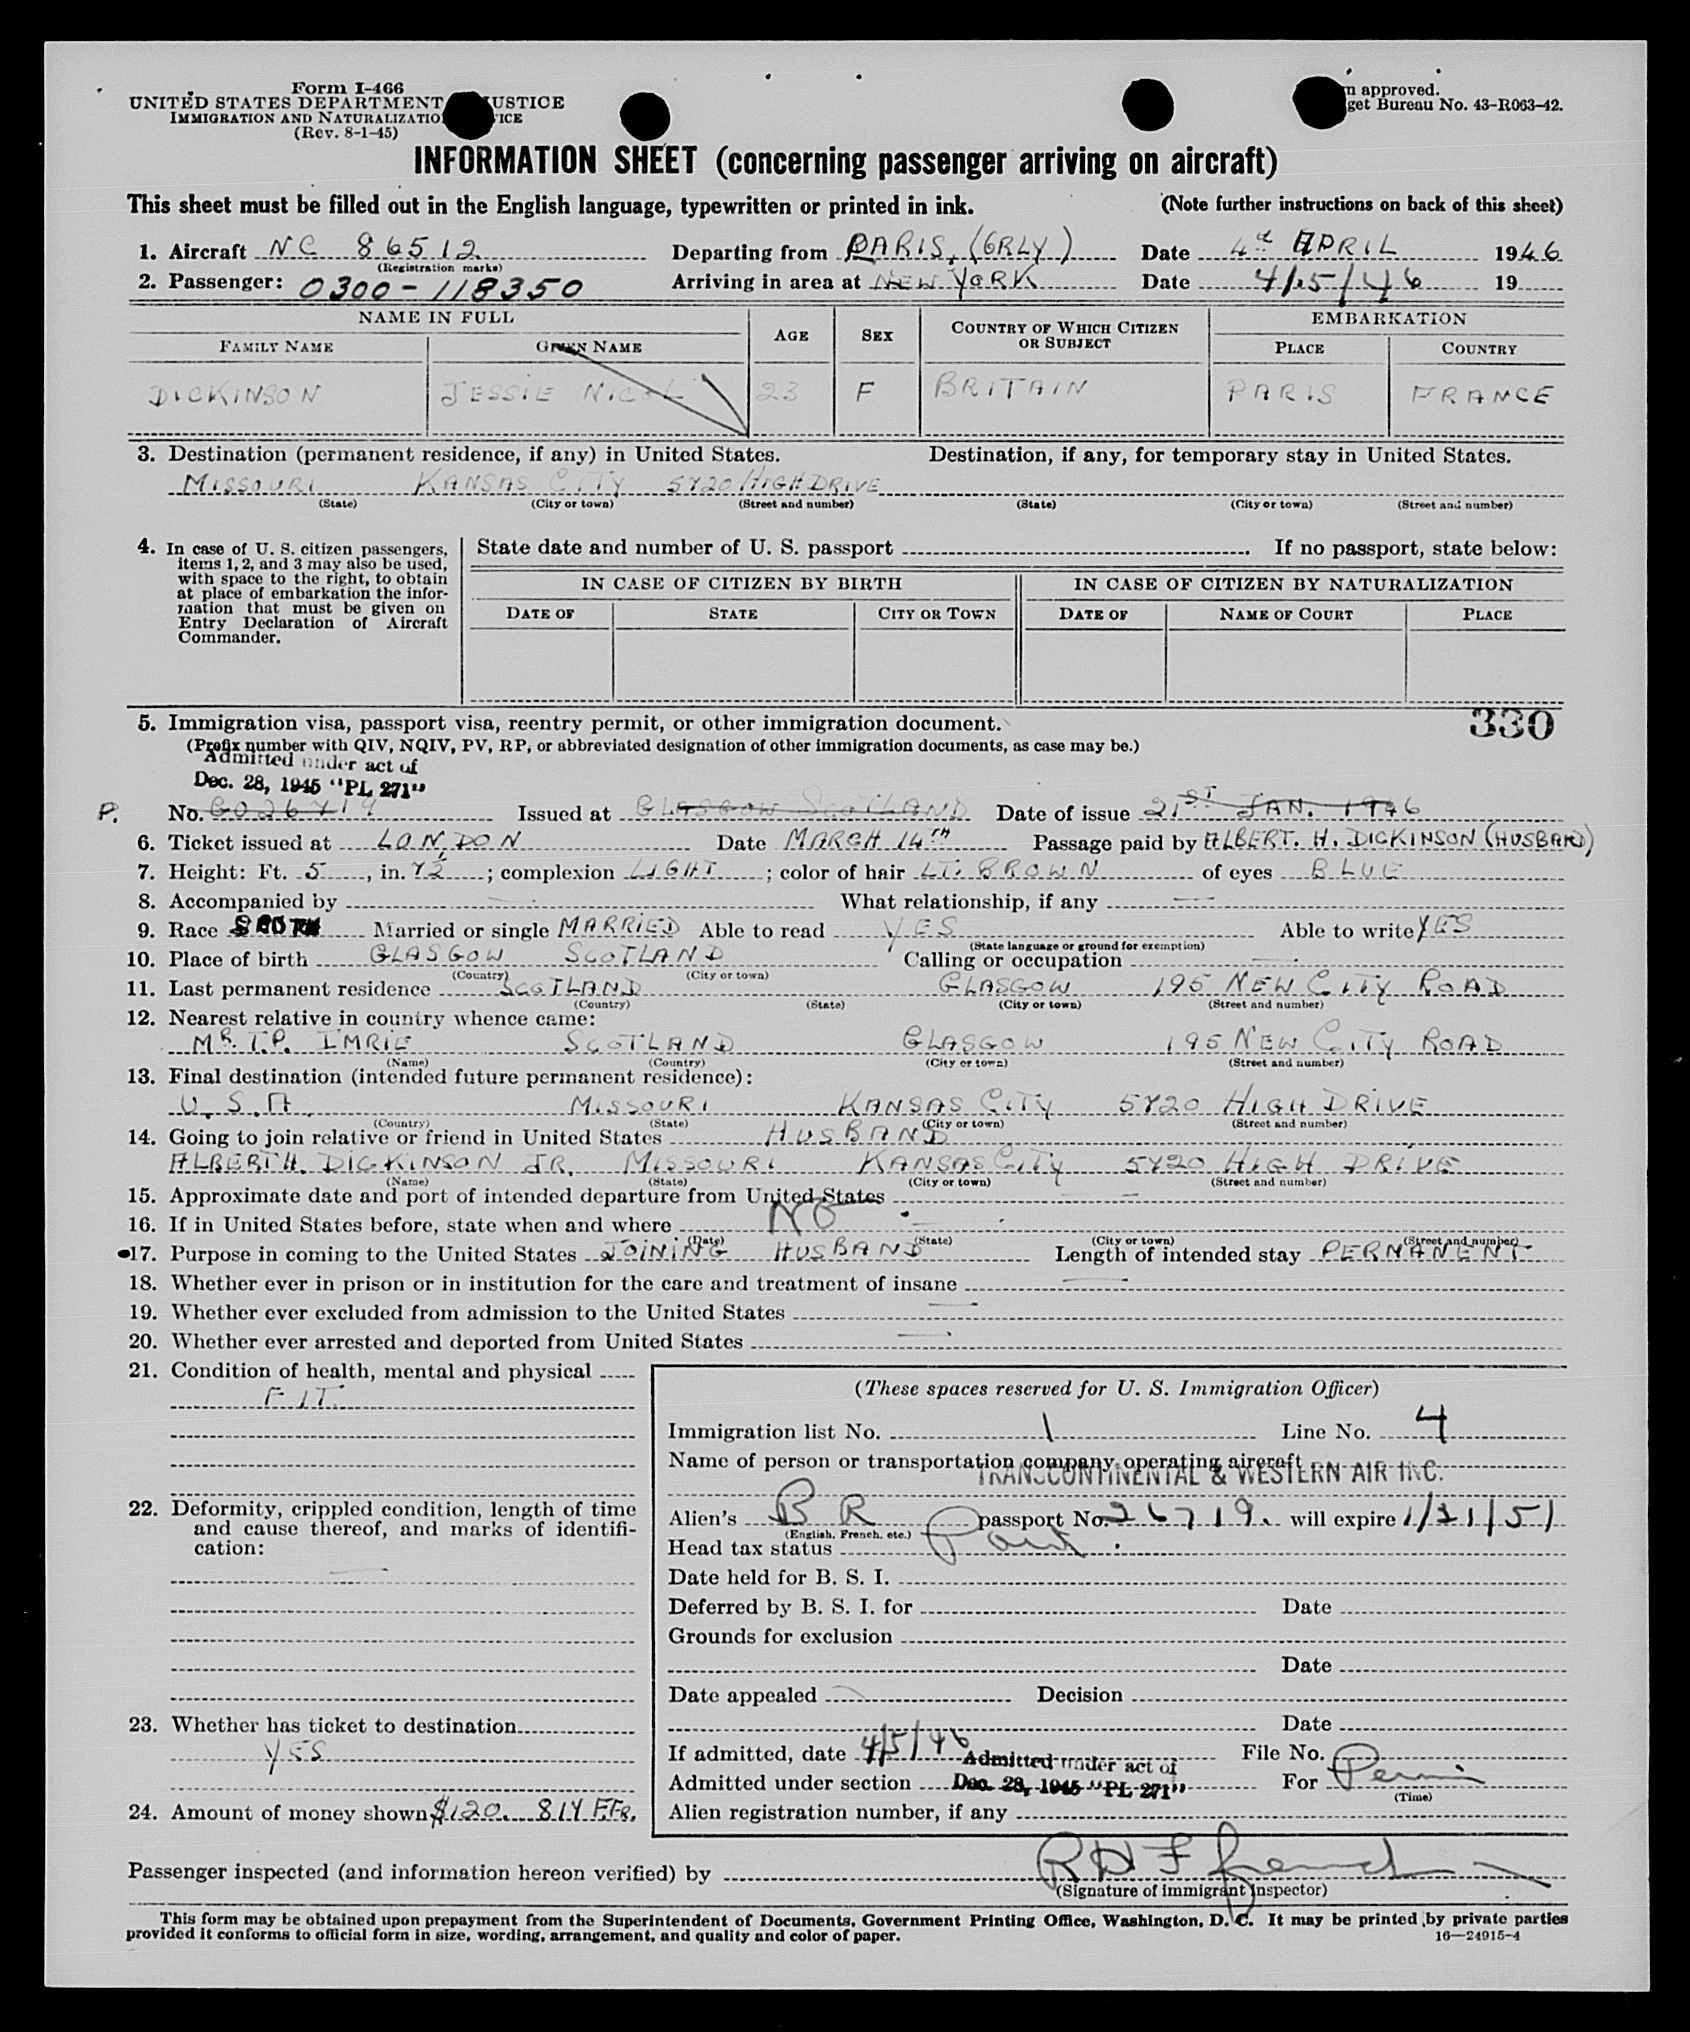 Form I-466
UNITED STATES DEPARTMENT JUSTICE
IMMIGRATION AND NATURALIZATION
(Rev. 8-1-45)
approved.
Bureau No. 43-R063-42.
INFORMATION SHEET (concerning passenger arriving on aircraft)
This sheet must be filled out in the English language, typewritten or printed in ink. (Note further instructions on back of this sheet)
1. Aircraft NC 86512 Departing from PARIS, (ORLY) Date 4th APRIL 1946
(Registration marks)
2. Passenger: 0300-118350 Arriving in area at NEW YORK Date 4/5/46 19
NAME IN FULL AGE SEX COUNTRY OF WHICH CITIZEN OR SUBJECT EMBARKATION
FAMILY NAME GIVEN NAME PLACE COUNTRY
DICKINSON JESSIE NICOL 23 F BRITAIN PARIS FRANCE
3. Destination (permanent residence, if any) in United States. Destination, if any, for temporary stay in United States.
MISSOURI KANSAS CITY 5720 HIGH DRIVE
(State) (City or town) (Street and number) (State) (City or town) (Street and number)
4. In case of U. S. citizen passengers, items 1, 2, and 3 may also be used, with space to the right, to obtain at place of embarkation the information that must be given on Entry Declaration of Aircraft Commander.
State date and number of U. S. passport If no passport, state below:
IN CASE OF CITIZEN BY BIRTH IN CASE OF CITIZEN BY NATURALIZATION
DATE OF STATE CITY OR TOWN DATE OF NAME OF COURT PLACE
330
5. Immigration visa, passport visa, reentry permit, or other immigration document.
(Prefix number with QIV, NQIV, PV, RP, or abbreviated designation of other immigration documents, as case may be.)
Admitted under act of
Dec. 28, 1945 "PL 271"
P. No. C026719 Issued at GLASGOW SCOTLAND Date of issue 21ST JAN. 1946
6. Ticket issued at LONDON Date MARCH 14TH Passage paid by ALBERT. H. DICKINSON (HUSBAND)
7. Height: Ft. 5, in. 7½; complexion LIGHT; color of hair LT. BROWN of eyes BLUE
8. Accompanied by — What relationship, if any —
9. Race SCOTCH Married or single MARRIED Able to read YES Able to write YES
(State language or ground for exemption)
10. Place of birth GLASGOW SCOTLAND Calling or occupation —
(Country) (City or town)
11. Last permanent residence SCOTLAND GLASGOW 195 NEW CITY ROAD
(Country) (State) (City or town) (Street and number)
12. Nearest relative in country whence came:
MR. T.P. IMRIE SCOTLAND GLASGOW 195 NEW CITY ROAD
(Name) (Country) (City or town) (Street and number)
13. Final destination (intended future permanent residence):
U.S.A. MISSOURI KANSAS CITY 5720 HIGH DRIVE
(Country) (State) (City or town) (Street and number)
14. Going to join relative or friend in United States HUSBAND
ALBERT H. DICKINSON JR. MISSOURI KANSAS CITY 5720 HIGH DRIVE
(Name) (State) (City or town) (Street and number)
15. Approximate date and port of intended departure from United States —
16. If in United States before, state when and where NO
(Date) (State) (City or town) (Street and number)
17. Purpose in coming to the United States JOINING HUSBAND Length of intended stay PERMANENT
18. Whether ever in prison or in institution for the care and treatment of insane —
19. Whether ever excluded from admission to the United States —
20. Whether ever arrested and deported from United States —
21. Condition of health, mental and physical
FIT.
22. Deformity, crippled condition, length of time and cause thereof, and marks of identification:
—
23. Whether has ticket to destination
YES
24. Amount of money shown $120. 817 F.FR.
(These spaces reserved for U. S. Immigration Officer)
Immigration list No. 1 Line No. 4
Name of person or transportation company operating aircraft
TRANSCONTINENTAL & WESTERN AIR INC.
Alien's BR passport No. 26719. will expire 1/21/51
(English, French, etc.)
Head tax status Paid.
Date held for B. S. I.
Deferred by B. S. I. for Date
Grounds for exclusion
Date
Date appealed Decision
Date
If admitted, date 4/5/46 File No.
Admitted under section Admitted under act of Dec. 28, 1945 "PL 271" For Perm
(Time)
Alien registration number, if any
Passenger inspected (and information hereon verified) by
(Signature of immigrant inspector)
This form may be obtained upon prepayment from the Superintendent of Documents, Government Printing Office, Washington, D. C. It may be printed by private parties
provided it conforms to official form in size, wording, arrangement, and quality and color of paper.
16—24915-4